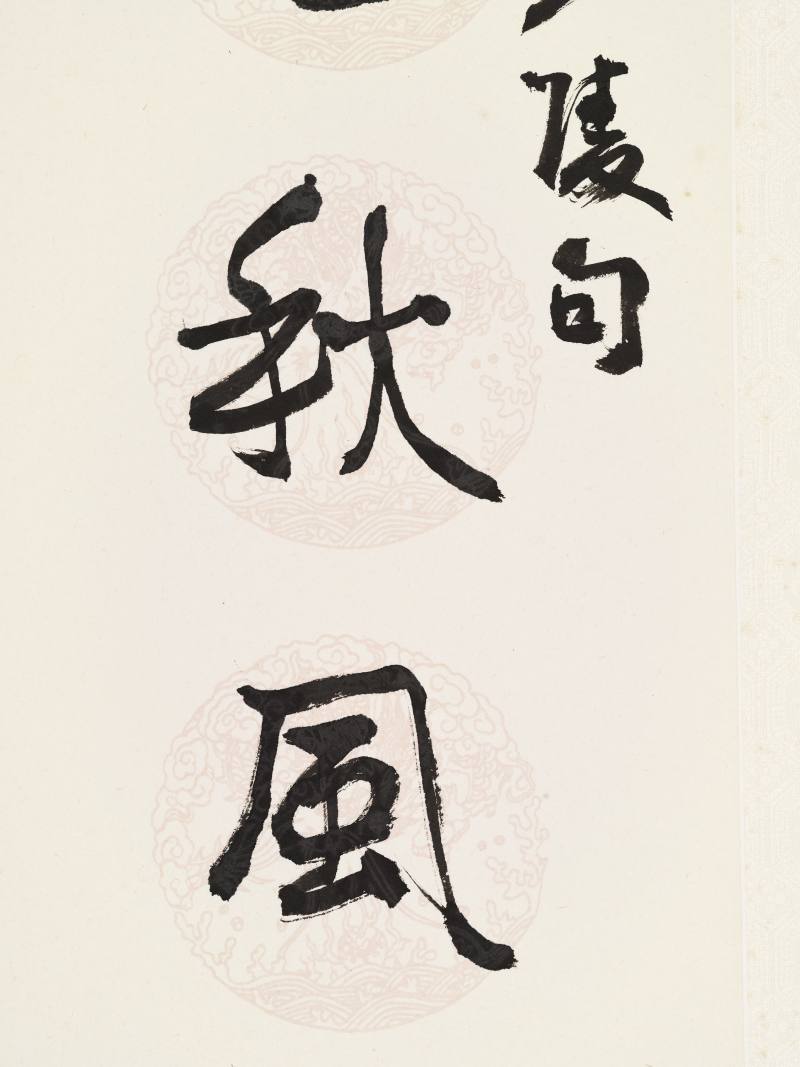 陵句
秋風